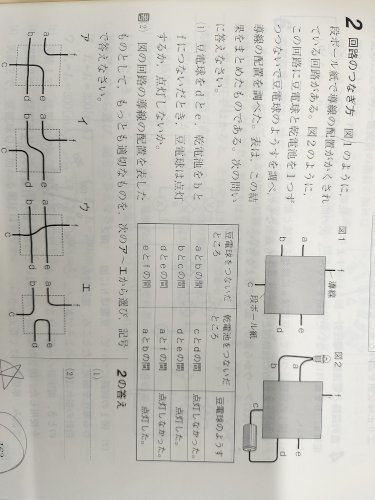 2 回路のつなぎ方 図1のように，
段ボール紙で導線の配置がかくされ
ている回路がある。図2のように，
この回路に豆電球と乾電池を1つず
つつないで豆電球のようすを調べ，
導線の配置を調べた。表は，この結
果をまとめたものである。次の問い
に答えなさい。
図1
a
b
c
d
e
f
導線
段ボール紙
図2
a
b
c
d
e
f
豆電球をつないだところ 乾電池をつないだところ 豆電球のようす
aとbの間 cとdの間 点灯しなかった。
bとcの間 dとeの間 点灯した。
dとeの間 aとfの間 点灯しなかった。
eとfの間 aとbの間 点灯した。
(1) 豆電球をdとe，乾電池をbと
fにつないだとき，豆電球は点灯
するか，点灯しないか。
(2) 図の回路の導線の配置を表した
ものとして，もっとも適切なものを，次のア～エから選び，記号
で答えなさい。
ア
a
b
c
d
e
f
イ
a
b
c
d
e
f
ウ
a
b
c
d
e
f
エ
a
b
c
d
e
f
2の答え
(1)
(2)